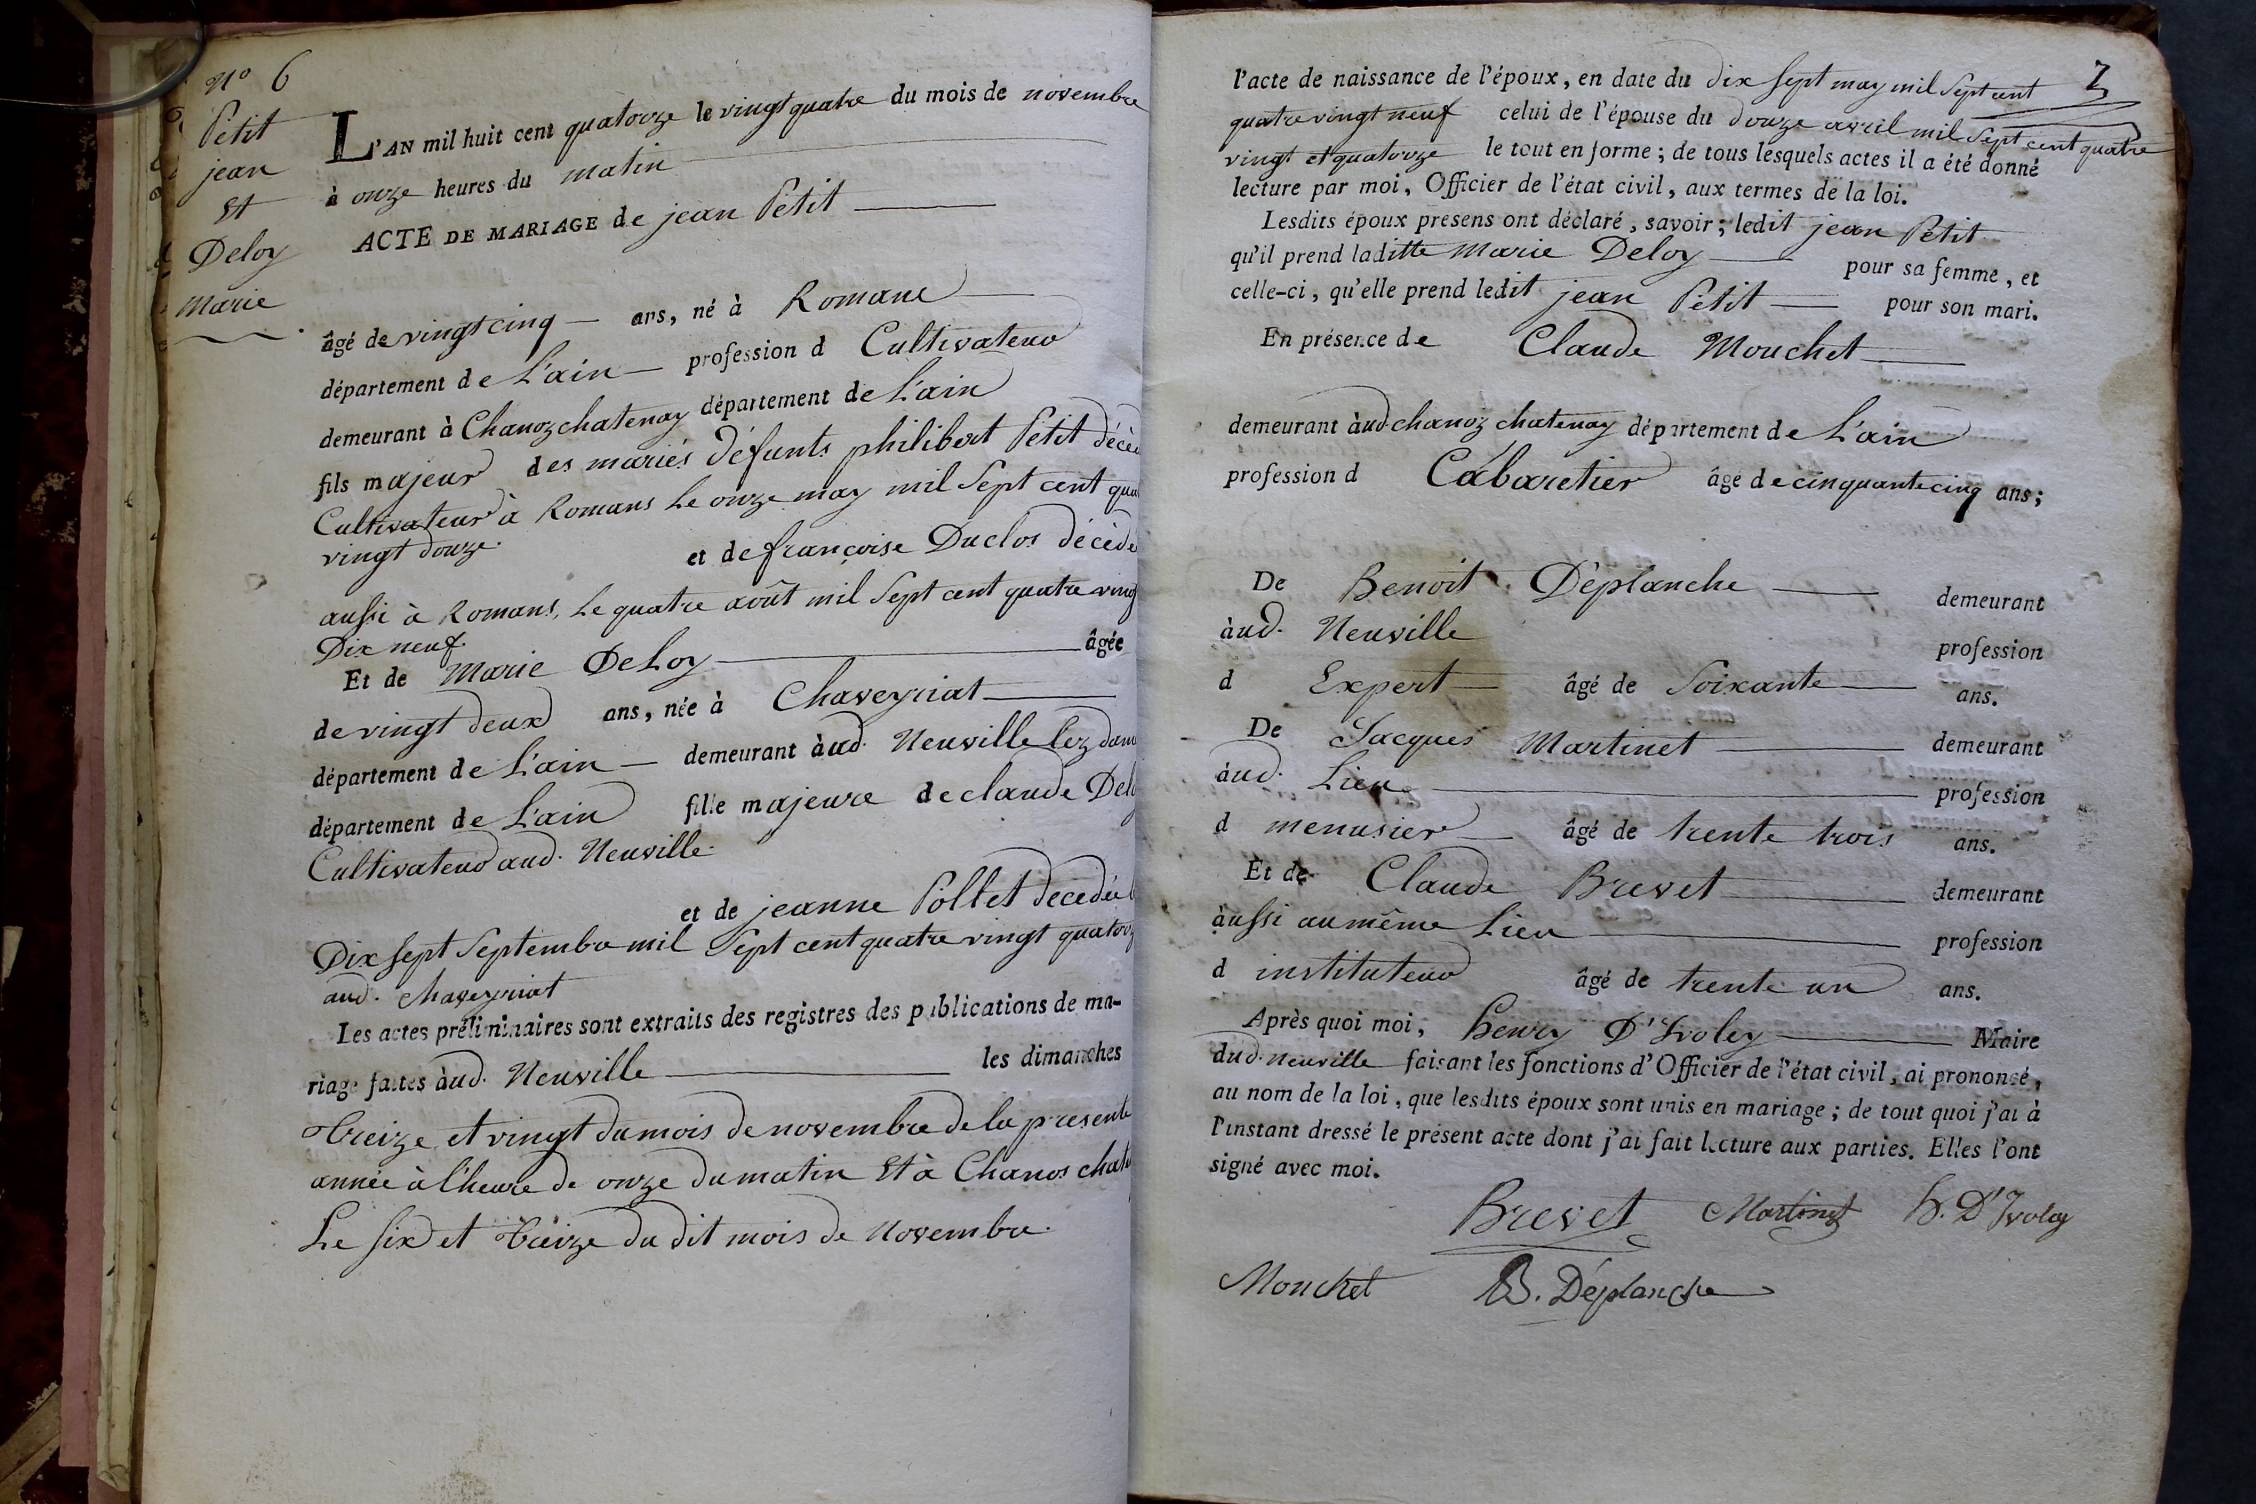 No 6
Petit
jean
Et
Deloy
Marie
L'AN mil huit cent quatorze le vingt quatre du mois de novembre
à onze heures du matin
ACTE DE MARIAGE de jean Petit
âgé de vingt cinq ans, né à Romane
département de L'ain profession d Cultivateur
demeurant à Chanoz chatenay département de L'ain
fils majeur des mariés défunts philibert Petit décéd
Cultivateur à Romans Le onze may mil Sept cent qua
vingt douze. et de françoise Duclos décédé
aussi à Romans, Le quatre août mil Sept cent quatre ving
Dix neuf.
Et de Marie DeLoy âgée
de vingt deux ans, née à Chaveyriat
département de L'ain demeurant àud. Neuville lez dam
département de L'ain fille majeure de claude Delo
Cultivateur aud. Neuville.
et de jeanne Pollet decedée
Dix sept Septembre mil Sept cent quatre vingt quatorz
aud. chaveyriat
Les actes préliminaires sont extraits des registres des publications de ma-
riage faites àud. Neuville les dimanches
treize et vingt du mois de novembre de la presente
année à l'heure de onze du matin Et à Chanos chate
Le six et treize du dit mois de Novembre.
7
l'acte de naissance de l'époux, en date du dix sept may mil Sept cent
quatre vingt neuf celui de l'épouse du douze avril mil Sept cent quatre
vingt et quatorze le tout en forme ; de tous lesquels actes il a été donné
lecture par moi, Officier de l'état civil, aux termes de la loi.
Lesdits époux présens ont déclaré, savoir ; ledit jean Petit
qu'il prend laditte Marie Deloy pour sa femme, et
celle-ci, qu'elle prend ledit jean Petit pour son mari.
En présence de Claude Mouchet
demeurant àud chanoz chatenay département de L'ain
profession d Cabaretier âgé de cinquante cinq ans ;
De Benoit Déplanche demeurant
àud. Neuville profession
d Expert âgé de Soixante ans.
De Jacques Martinet demeurant
àud. Lieu profession
d menusier âgé de trente trois ans.
Et de Claude Brevet demeurant
àussi au même Lieu profession
d instituteur âgé de trente un ans.
Après quoi moi, henry D'Ivoley Maire
dud. Neuville faisant les fonctions d'Officier de l'état civil, ai prononcé,
au nom de la loi, que lesdits époux sont unis en mariage ; de tout quoi j'ai à
l'instant dressé le présent acte dont j'ai fait lecture aux parties. Elles l'ont
signé avec moi.
Brevet Martinet h. D'Ivoley
Mouchet B. Déplanche